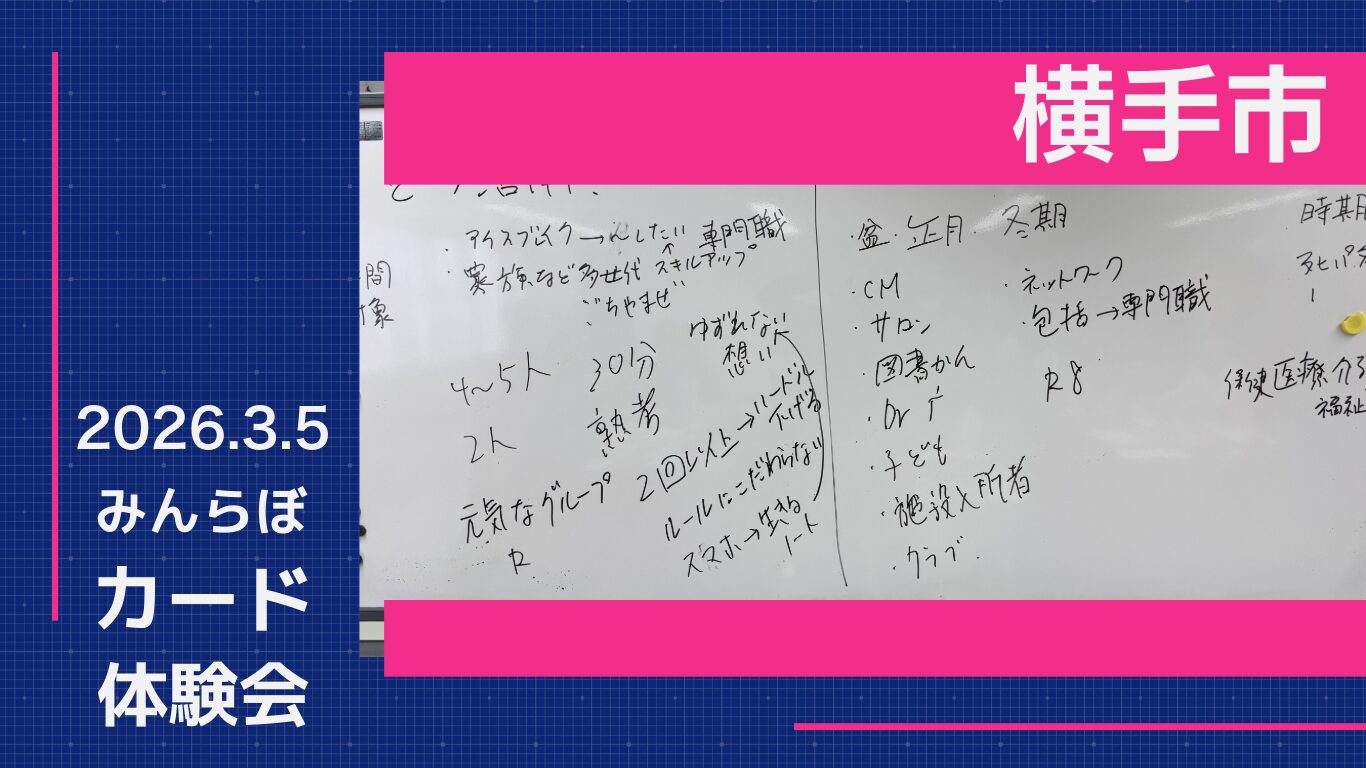 横手市
2026.3.5
みんらぼ
カード
体験会
間
像
・アイスブレイク→ したい 専門職
・家族など多世代 スキルアップ
ごちゃまぜ
ゆずれない
想い
4〜5人 30分
2人 熟考
元気なグループ
2回以上→ハードル
下げる
ルールにこだわらない
スマホ→
ノート
・盆・正月・冬期
・CM
・サロン
・図書かん
・Dr
・子ども
・施設入所者
・クラブ
・ネットワーク
・包括→専門職
R8
時期
保健医療介
福祉